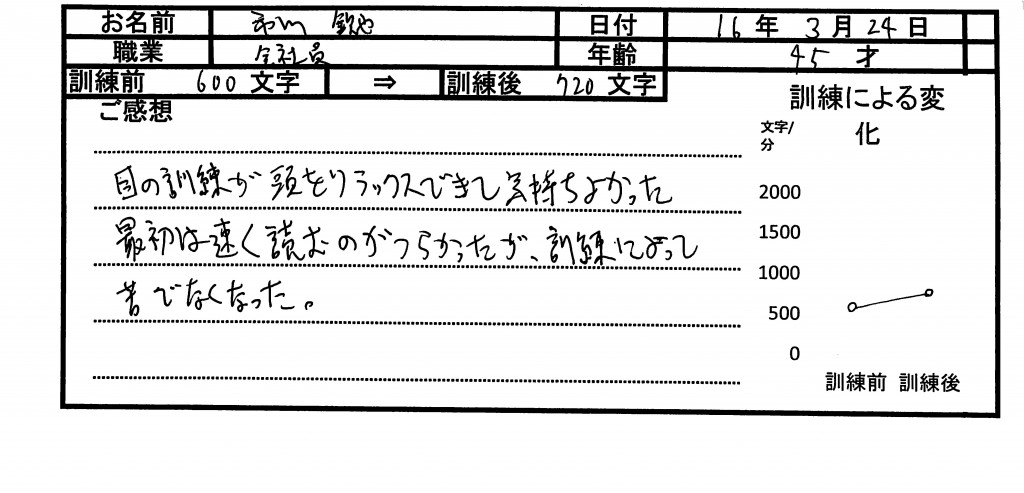 お名前 市川 日付 16年 3月 24日
職業 会社員 年齢 45 才
訓練前 600 文字 ⇒ 訓練後 720 文字
ご感想
目の訓練が頭をリラックスできて気持ちよかった
最初は速く読むのがつらかったが、訓練によって
苦でなくなった。
訓練による変
化
文字/
分
2000
1500
1000
500
0
訓練前 訓練後